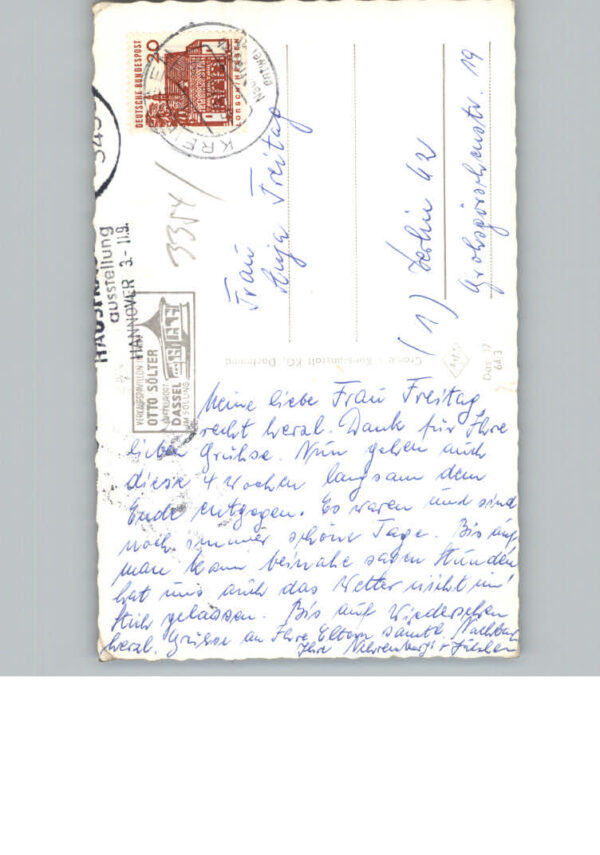 DEUTSCHE BUNDESPOST
20
LORSCH/HESSEN
KREI
3354
ausstellung
HANNOVER 3.-11.9.
OTTO SÖLTER
DASSEL
IM SOLLING
Frau
Anja Freitag
(1) Berlin 42
Großgörschenstr. 19
Cramers Kunstanstalt KG, Dortmund
Das. 17
64/3
Meine liebe Frau Freitag,
recht herzl. Dank für Ihre
lieben Grühse. Nun gehen auch
diese 4 Wochen langsam dem
Ende entgegen. Es waren und sind
noch immer schöne Tage. Bis auf
man kann beinahe sagen Stunden
hat uns auch das Wetter nicht im
Stich gelassen. Bis auf Wiedersehen
herzl. Grüsse an Ihre Eltern samtl. Nachbarn
Ihre